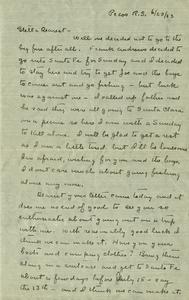 Pecos R.S. 6/29/23
Dearest -
Well we decided not to go the
after all. Frank Andrews decided to
go into Santa Fe for Sunday and I decided
to stay here and try to get Joe and the boys
to come out and go fishing - but luck
was against me - I called up
he said they were all going to Santa Clara
on a so here I am with a Sunday
to kill alone. I will be glad to get a rest
as I am a little tired but I'll be lonesome
I'm afraid, wishing for you and I
do not care much about going fishing
alone any more.
your letter came today and it
does me no end of good to see you so
enthusiastic about going out on a trip
with me. With reasonably good luck I
think we can make it. Have you your
boots and camping clothes? Bring them
along - and get to Santa Fe
about a day before July 15 - say
the 13th - and I think we can make it.